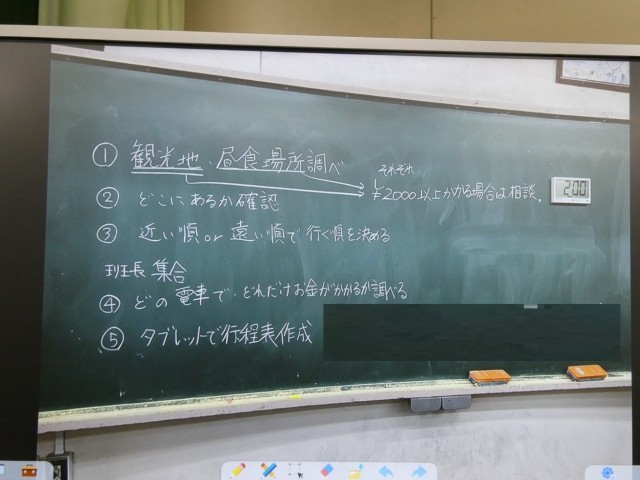 ① 観光地、昼食場所調べ
それぞれ
¥2000以上かかる場合は相談。
2:00
② どこにあるか確認
③ 近い順or遠い順で行く順を決める
班長 集合
④ どの電車で、どれだけお金がかかるか調べる
⑤ タブレットで行程表作成